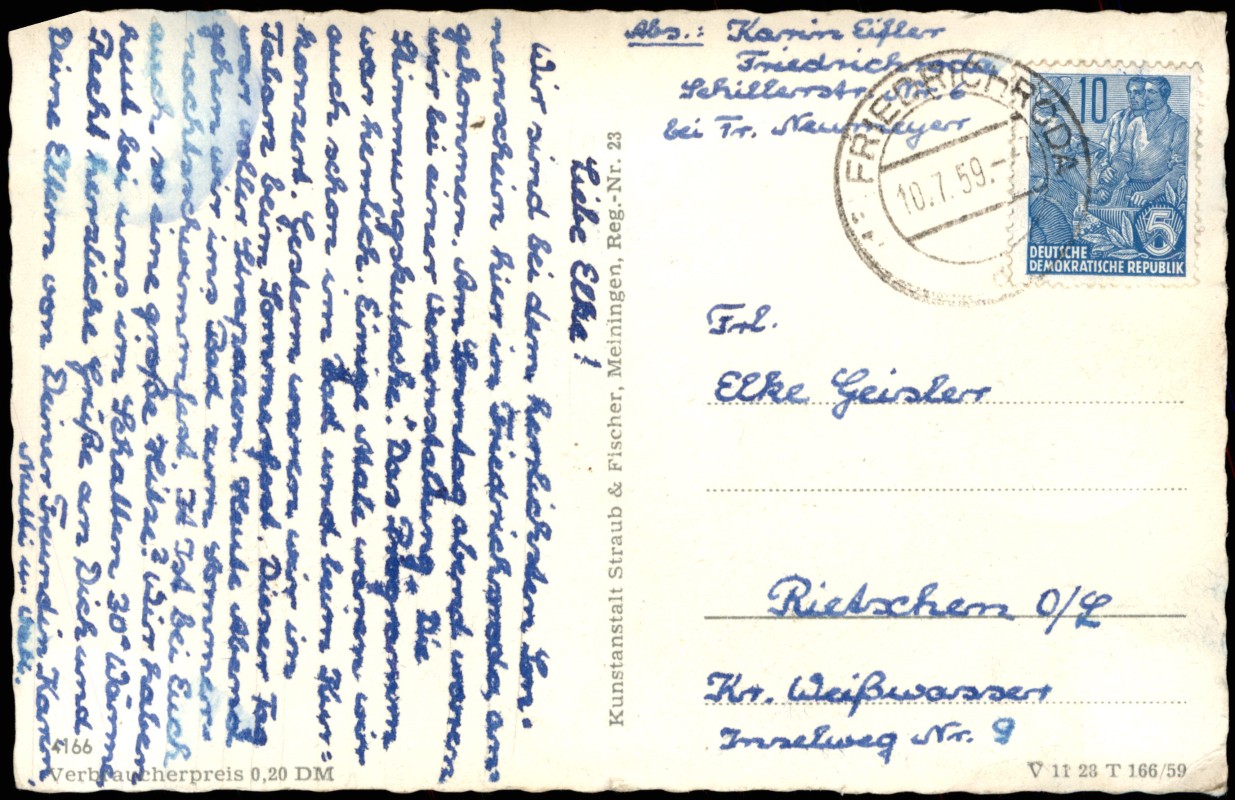 Liebe Elke!
Wir sind bei dem herrlichsten Son-
nenschein hier in Friedrichroda, an-
gekommen. Am Sonntag abend waren
wir bei einer Veranstaltung „Die
Stimmungskutsche." Das Programm
war herrlich. Einige Male waren wir
auch schon im Bad und beim Kur-
konzert. Gestern waren wir in
Tabarz beim Sommerfest. Dieser Tag
war voller Strapazen. Heute Abend
gehen wir ins Bad zum Sommer-
nachtschwimmfest. Ist bei Euch
auch so eine große Hitze? Wir haben
heut bei uns im Schatten 30° Wärme
Recht herzliche Grüße an Dich und
Deine Eltern von Deiner Freundin Karin
Mutti u. Vati.
4166
Verbraucherpreis 0,20 DM
Kunstanstalt Straub & Fischer, Meiningen, Reg.-Nr. 23
Abs.: Karin Eifler
Friedrichroda
Schillerstr. Nr. 6
bei Fr. Neumeyer
FRIEDRICHRODA
10.7.59.-
10
5
DEUTSCHE
DEMOKRATISCHE REPUBLIK
Frl.
Elke Geisler
Rietschen O/L
Kr. Weißwasser
Inselweg Nr. 9
V 11 28 T 166/59